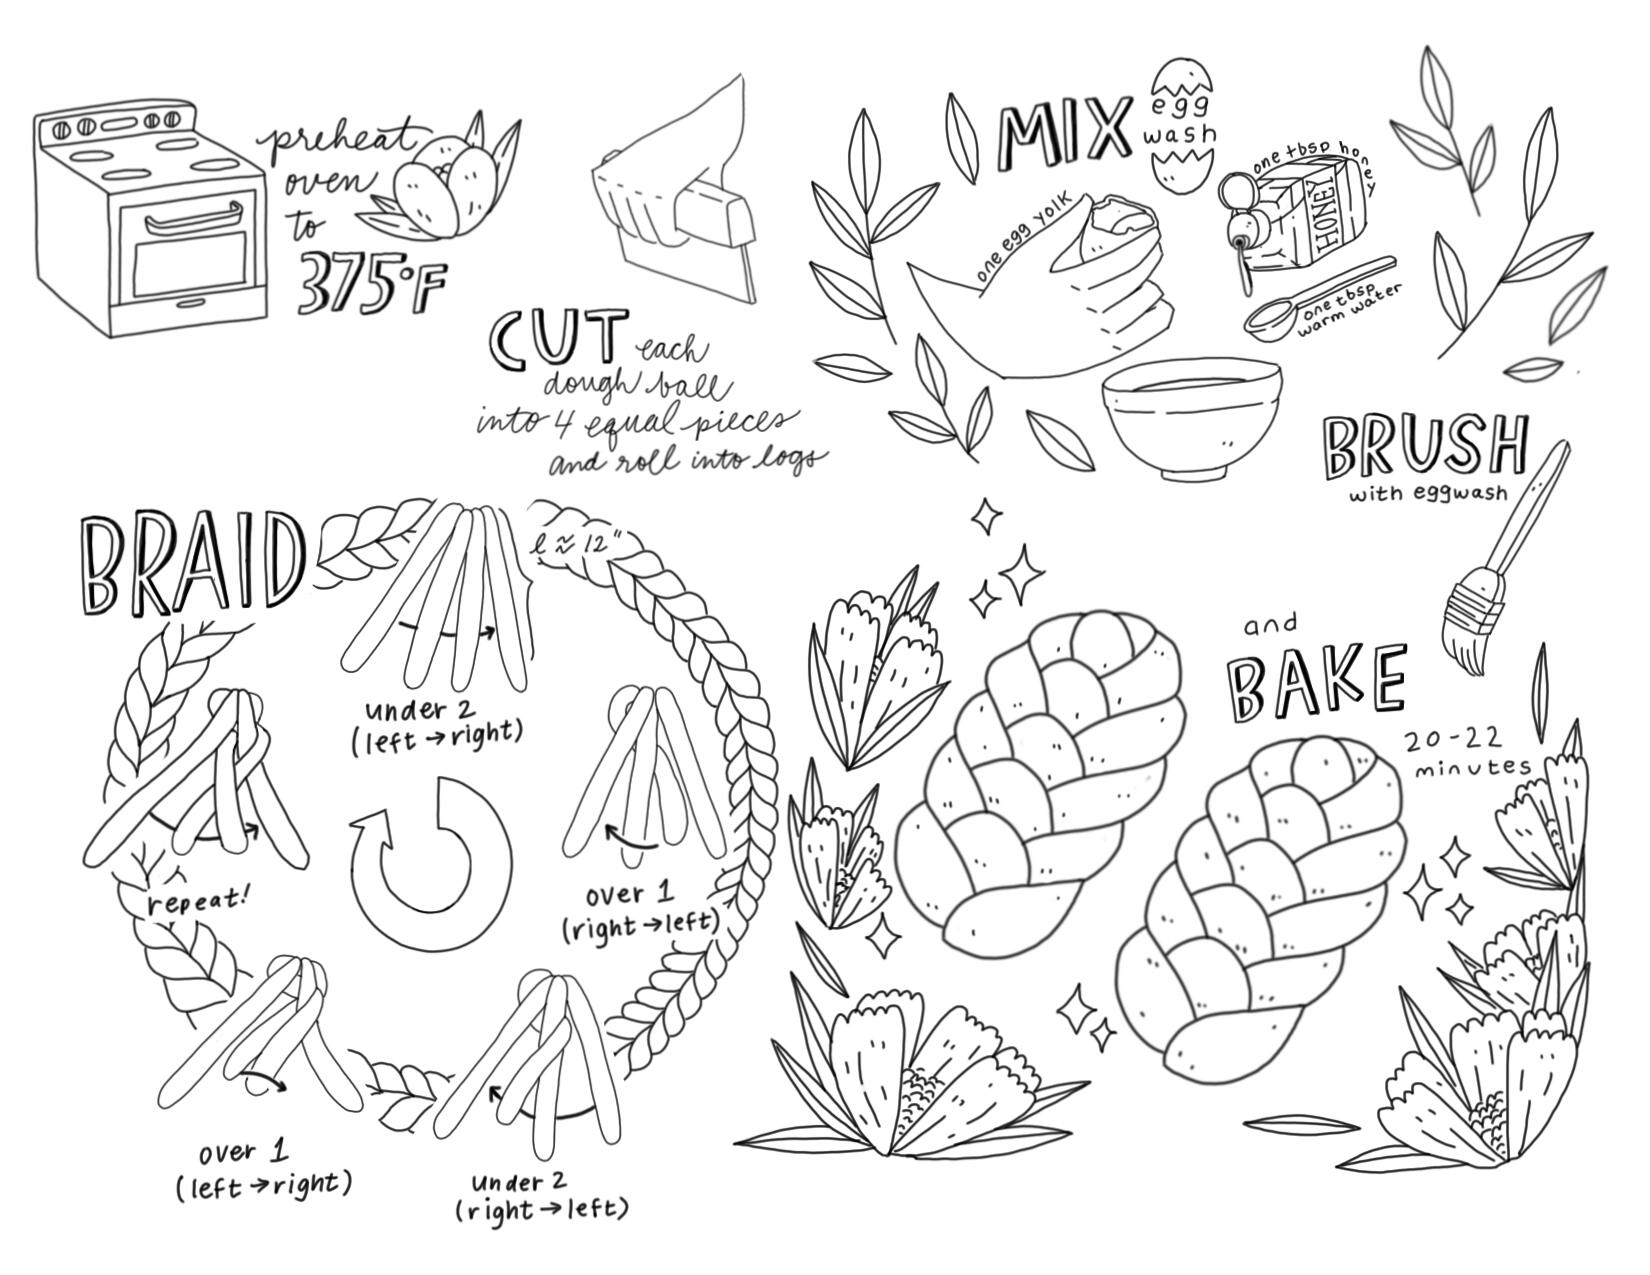 preheat
oven
to
375°F
CUT each
dough ball
into 4 equal pieces
and roll into logs
MIX
egg
wash
one egg yolk
one tbsp honey
HONEY
one tbsp
warm water
BRUSH
with eggwash
BRAID
l ≈ 12"
under 2
(left → right)
over 1
(right → left)
under 2
(right → left)
over 1
(left → right)
repeat!
and
BAKE
20-22
minutes